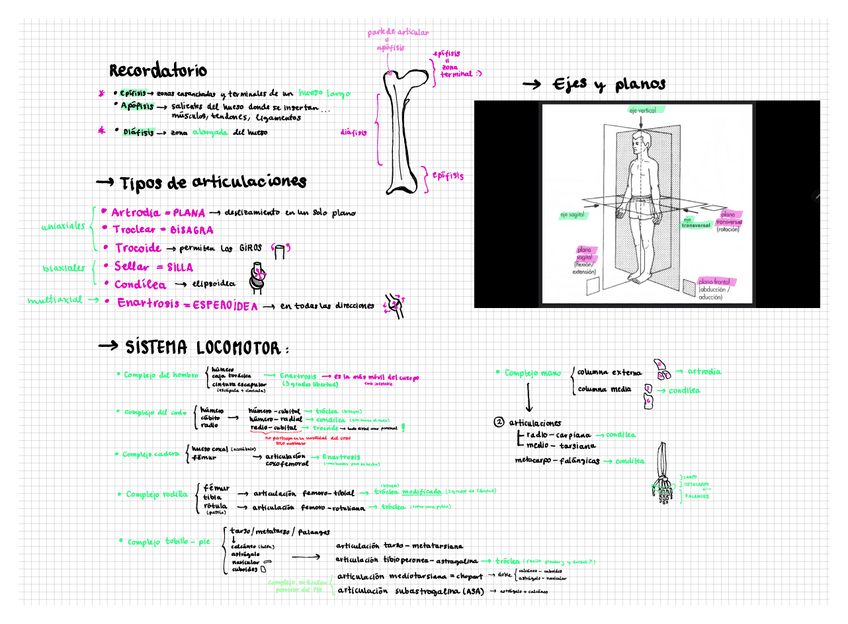 Recordatorio
* • Epífisis → zonas ensanchadas y terminales de un hueso largo
• Apófisis → salientes del hueso donde se insertan...
músculos, tendones, ligamentos
* • Diáfisis → zona alargada del hueso
parte de articular
o
apófisis
epífisis
o
zona
terminal :)
diáfisis
epífisis
→ Ejes y planos
eje vertical
eje sagital
eje
transversal
plano
transversal
(rotación)
plano
sagital
(flexión/
extensión)
plano frontal
(abducción /
aducción)
→ Tipos de articulaciones
uniaxiales
• Artrodia = PLANA → deslizamiento en un solo plano
• Troclear = BISAGRA
• Trocoide → permiten los GIROS
biaxiales
• Sellar = SILLA
• Condílea → elipsoidea
multiaxial →
• Enartrosis = ESFEROIDEA → en todas las direcciones
→ SISTEMA LOCOMOTOR:
• Complejo del hombro
húmero
caja torácica
cintura escapular
(escápula + clavícula)
→ Enartrosis → es la más móvil del cuerpo
(3 grados libertad)
• Complejo del codo
húmero
cúbito
radio
→ húmero-cubital → tróclea
húmero-radial → condílea
radio-cubital → trocoide
• Complejo cadera
hueso coxal
fémur
→ articulación
coxofemoral
→ Enartrosis
• Complejo rodilla
fémur
tibia
rótula
→ articulación femoro-tibial → tróclea modificada
→ articulación femoro-rotuliana → tróclea
• Complejo tobillo-pie
tarso/metatarso/falanges
↓
calcáneo
astrágalo
navicular
cuboides
→ articulación tarso-metatarsiana
articulación tibioperonea-astragalina → tróclea
articulación mediotarsiana = chopart →
calcáneo-cuboidea
astrágalo-navicular
articulación subastragalina (ASA) → astrágalo + calcáneo
• Complejo mano
columna externa → artrodia
columna media → condílea
② articulaciones
radio-carpiana → condílea
medio-tarsiana
metacarpo-falángicas → condílea
CARPO
METACARPO
FALANGES